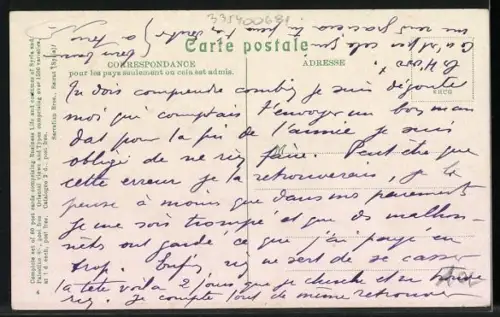 335400681
Carte postale
CORRESPONDANCE
pour les pays seulement ou cela est admis.
ADRESSE
Tu dois comprendre combien je suis dégouté
moi qui comptais t'envoyer un bon man
dat pour la fin de l'année je suis
obligé de ne rien faire. Peut être que
cette erreur je la retrouverais, je
pense à moins que dans mes paiements
je me sois trompé et que des malhon
nêts ont gardé ce que j'ai payé en
trop. Enfin rien ne sert de se casser
la tête voilà 2 jours que je cherche et ne trouve
rien. Je compte tout de même retrouver
Complete set of 60 post cards comprising Business Life and customs of Syria and
Palestine post free Oriental views and Types comprising over 1200 varieties
at 1 d. each, post free. Catalogue 3 d., post free.
Sarrafian Bros., Beirut (Syria)